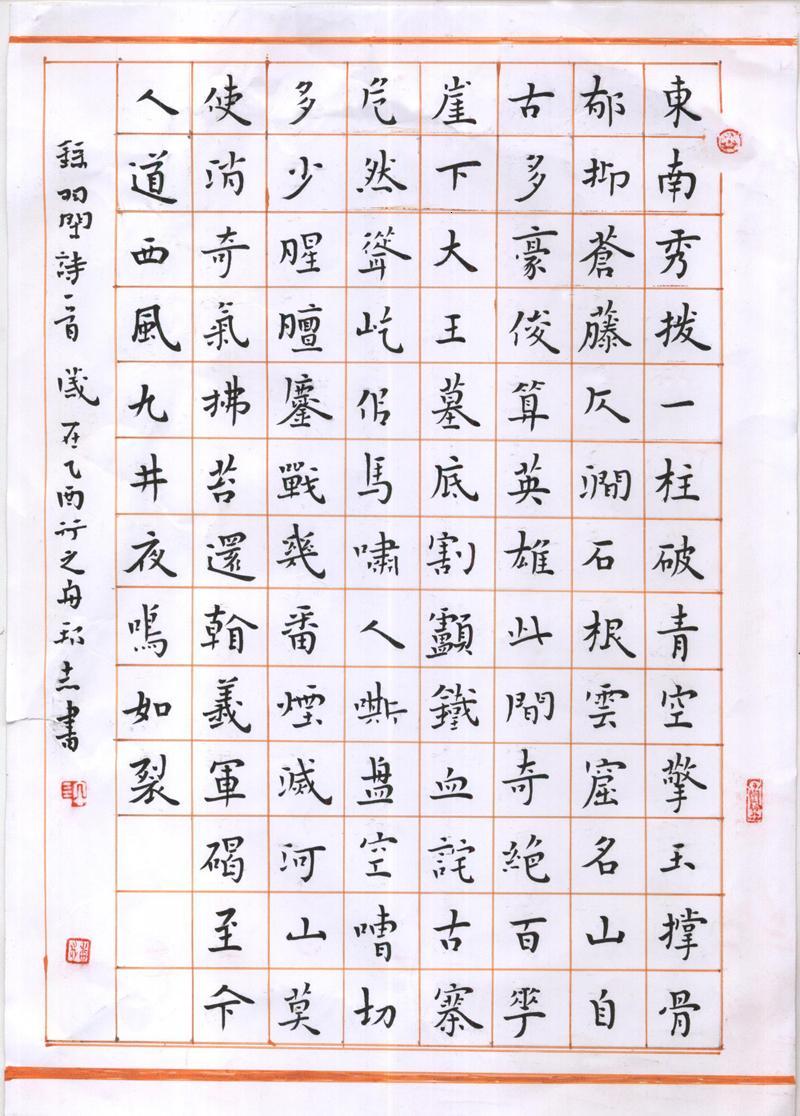 東南秀拨一柱破青空擎玉撑骨
郁抑蒼藤仄澗石根雲窟名山自
古多豪俊算英雄此間奇絶百
崖下大王墓底割顱鐵血詫古寨
危然聳屹侣馬嘯人嘶盘空嘈切
多少腥膻鏖戰幾番煙滅河山莫
使消奇氣拂苔還翰義軍碣至今
人道西風九井夜鳴如裂
録羽詩一首 歲在乙酉行之舟志書